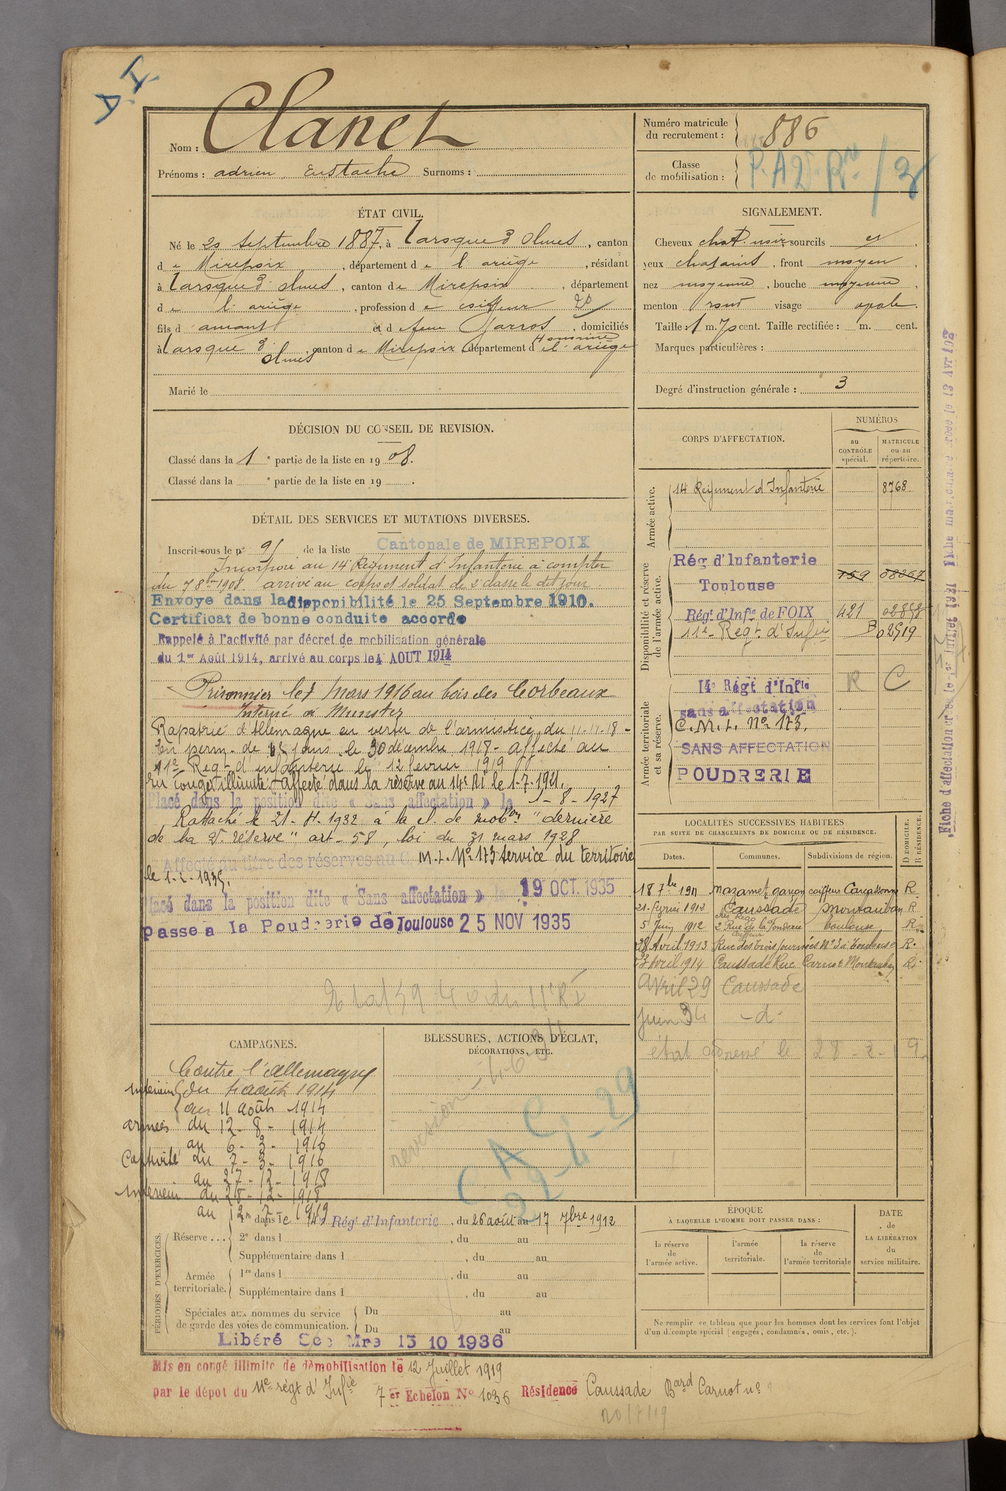 Nom : Clanet
Prénoms : adrien Eustache Surnoms :
Numéro matricule du recrutement : 886
Classe de mobilisation :
ÉTAT CIVIL.
Né le 20 Septembre 1887, à Laroque d'Olmes, canton
d e Mirepoix, département d e l'ariège, résidant
à Laroque d'Olmes, canton d e Mirepoix, département
d e l'ariège, profession d e coiffeur
fils d' amant et d e feue Garros, domiciliés
à Laroque d'Olmes, canton d e Mirepoix, département d e l'ariège
Marié le
SIGNALEMENT.
Cheveux chat. noir sourcils
yeux chatains, front moyen
nez moyenne, bouche moyenne
menton rond visage ovale.
Taille : 1 m. 70 cent. Taille rectifiée : m. cent.
Marques particulières :
Degré d'instruction générale : 3
DÉCISION DU CONSEIL DE REVISION.
Classé dans la 1e partie de la liste en 1908.
Classé dans la e partie de la liste en 19 .
DÉTAIL DES SERVICES ET MUTATIONS DIVERSES.
Inscrit sous le no 91 de la liste Cantonale de MIREPOIX
Incorporé au 14 Régiment d'Infanterie à compter
du 7 8bre 1908. arrivé au corps et soldat de 2e classe le dit jour
Envoyé dans la disponibilité le 25 Septembre 1910.
Certificat de bonne conduite accordé
Rappelé à l'activité par décret de mobilisation générale
du 1er Août 1914, arrivé au corps le 4 AOUT 1914
Prisonnier le 7 Mars 1916 au bois des Corbeaux
Interné à Munster
Rapatrié d'Allemagne en vertu de l'armistice du 11.11.18 -
En perm. de jours le 30 décembre 1918 - affecté au
11e Regt d'infanterie le 12 février 1919
En congé illimité - Affecté dans la réserve au 14e RI le 1-7-1921.
Placé dans la position dite « Sans affectation » le 1-8-1927
Rattaché le 21-4-1932 à la cl. de mobon "dernière
de la 2e réserve" art-58, loi du 31 mars 1928
Affecté au titre des réserves au C. M.L. No 173 Service du territoire
le 1-2-1935.
Placé dans la position dite « Sans affectation » le 19 OCT. 1935
passe à la Poudrerie de Toulouse 25 NOV 1935
CORPS D'AFFECTATION.
NUMÉROS
au CONTRÔLE spécial.
MATRICULE ou au répertoire.
Armée active.
14 Régiment d'Infanterie 8768
Disponibilité et réserve de l'armée active.
Rég d'Infanterie
Toulouse 759
Régt d'Infie de FOIX 421
11e Régt d'Infie B 02519
Armée territoriale et sa réserve.
14e Régt d'Infie R C
sans affectation
C.M.L. No 173.
SANS AFFECTATION
POUDRERIE
LOCALITÉS SUCCESSIVES HABITÉES
PAR SUITE DE CHANGEMENTS DE DOMICILE OU DE RÉSIDENCE.
Dates. Communes. Subdivisions de région. D DOMICILE. R RÉSIDENCE.
18 7bre 1911 Mazamet garçon coiffeur Carcassonne R
21 février 1912 Caussade Montauban R
5 Juin 1912 2 Rue de la Fonderie Toulouse R.
28 Avril 1913 Rue des trois fournées No 3 à Toulouse R.
Avril 1914 Caussade Rue Carnot Montauban R.
Avril 29 Caussade
Juin 34 - d -
état adressé le 28-2-19
CAMPAGNES.
Contre l'Allemagne
Intérieur du 4 août 1914
au 11 août 1914
armées du 12-8-1914
au 6-3-1916
Captivité du 7-3-1916
au 27-12-1918
Intérieur du 28-12-1918
au 1919
BLESSURES, ACTIONS D'ÉCLAT,
DÉCORATIONS, ETC.
revision
C A C
22-4-29
PÉRIODES D'EXERCICES.
Réserve . . .
1re dans le 14e Régt d'Infanterie, du 26 août au 17 7bre 1912
2e dans l , du au
Supplémentaire dans l , du au
Armée territoriale.
1re dans l , du au
Supplémentaire dans l , du au
Spéciales aux hommes du service de garde des voies de communication.
Du au
Du au
ÉPOQUE
À LAQUELLE L'HOMME DOIT PASSER DANS :
la réserve de l'armée active.
l'armée territoriale.
la réserve de l'armée territoriale
DATE de LA LIBÉRATION du service militaire.
Ne remplir ce tableau que pour les hommes dont les services font l'objet
d'un décompte spécial (engagés, condamnés, omis, etc.).
Libéré Sce Mre 13 10 1936
Mis en congé illimité de démobilisation le 12 Juillet 1919
par le dépôt du 11e régt d'Infie 7er Echelon No 1036 Résidence Caussade Bard Carnot